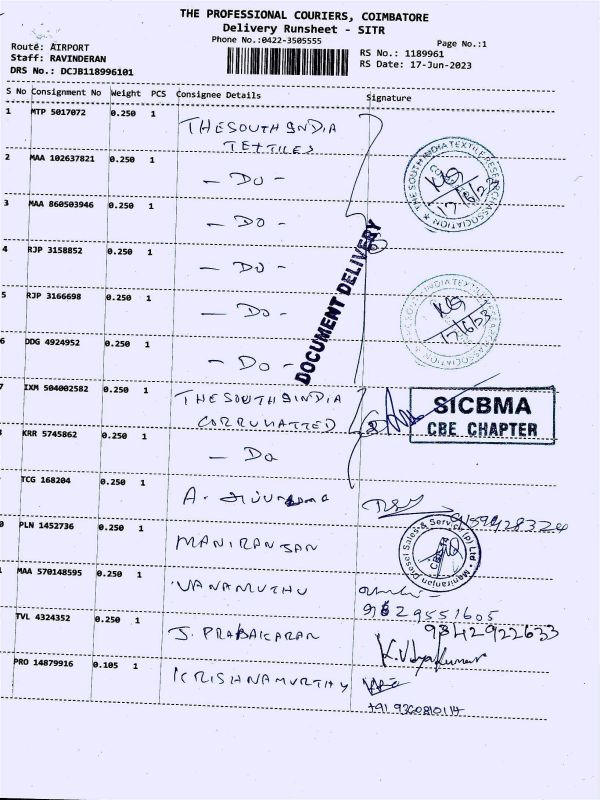 THE PROFESSIONAL COURIERS, COIMBATORE
Delivery Runsheet - SITR
Phone No.:0422-3505555
Page No.:1
Route: AIRPORT
Staff: RAVINDERAN
DRS No.: DCJB118996101
RS No.: 1189961
RS Date: 17-Jun-2023
S No Consignment No Weight PCS Consignee Details Signature
1 MTP 5017072 0.250 1 THE SOUTH INDIA
TEXTILES
2 MAA 102637821 0.250 1 - DO -
3 MAA 860503946 0.250 1 - DO -
4 RJP 3158852 0.250 1 - DO -
5 RJP 3166698 0.250 1 - DO -
6 DDG 4924952 0.250 1 - DO -
7 IXM 504002582 0.250 1 THE SOUTH INDIA
CORRUHATTED
KRR 5745862 0.250 1 - Do
TCG 168204 0.250 1 A.
PLN 1452736 0.250 1 MANIRANJAN
MAA 570148595 0.250 1 VANAMUTHU
TVL 4324352 0.250 1 J. PRABAKARAN
PRO 14879916 0.105 1 KRISHNAMURTHY
DOCUMENT DELIVERY
THE SOUTH INDIA TEXTILE RESEARCH ASSOCIATION
17/6/23
THE SOUTH INDIA TEXTILE RESEARCH ASSOCIATION
17/6/23
SICBMA
CBE CHAPTER
Maniranjan Diesel Sales & Service (P) Ltd
9842922633
K.Vijayakumar
+91 9360810114